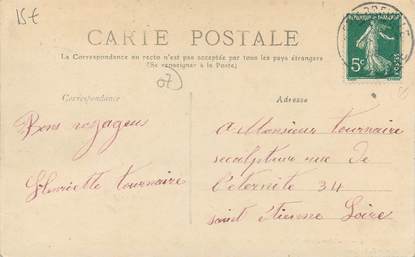 15€
CARTE POSTALE
La Correspondance au recto n'est pas acceptée par tous les pays étrangers
(Se renseigner à la Poste)
07
Correspondance
Adresse
REPUBLIQUE FRANÇAISE
5c
POSTES
Bons voyageus
Henriette tournaire
a Monsieur tournaire
sculpture rue de
l'eternite 34
saint étienne Loire